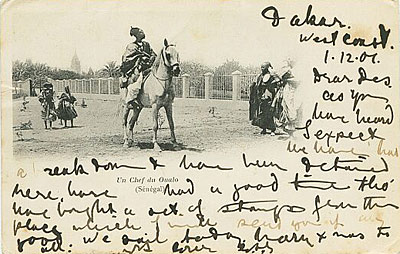 Dakar.
West Coast.
1.12.01.
Dear Des
as you
have heard
I expect
we have had
a break down & have been detained
Un Chef du Oualo
(Sénégal)
here, have had a good time tho'
have bought a set of stamps from this
place which I will send you if any
good. We sail today Merry Xmas to
all.